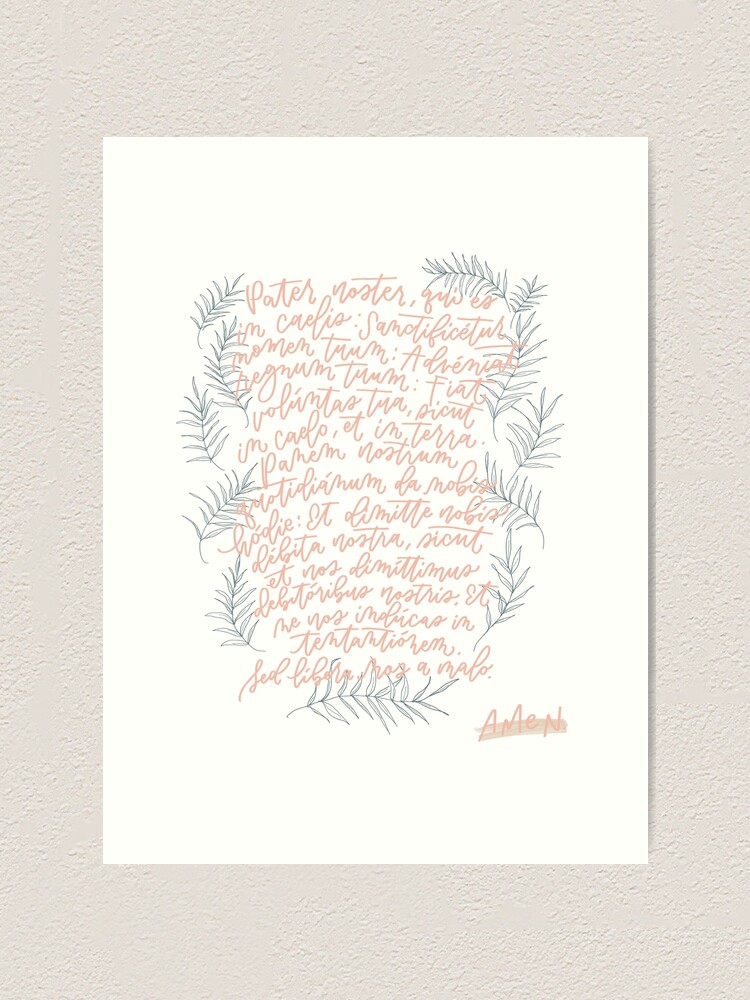 Pater noster, qui es
in caelis: Sanctificétur
nomen tuum: Advéniat
regnum tuum: Fiat
volúntas tua, sicut
in caelo, et in terra.
Panem nostrum
quotidiánum da nobis
hódie: Et dimitte nobis
débita nostra, sicut
et nos dimittimus
debitóribus nostris. Et
ne nos indúcas in
tentantiórem.
Sed líbera nos a malo.
AMeN